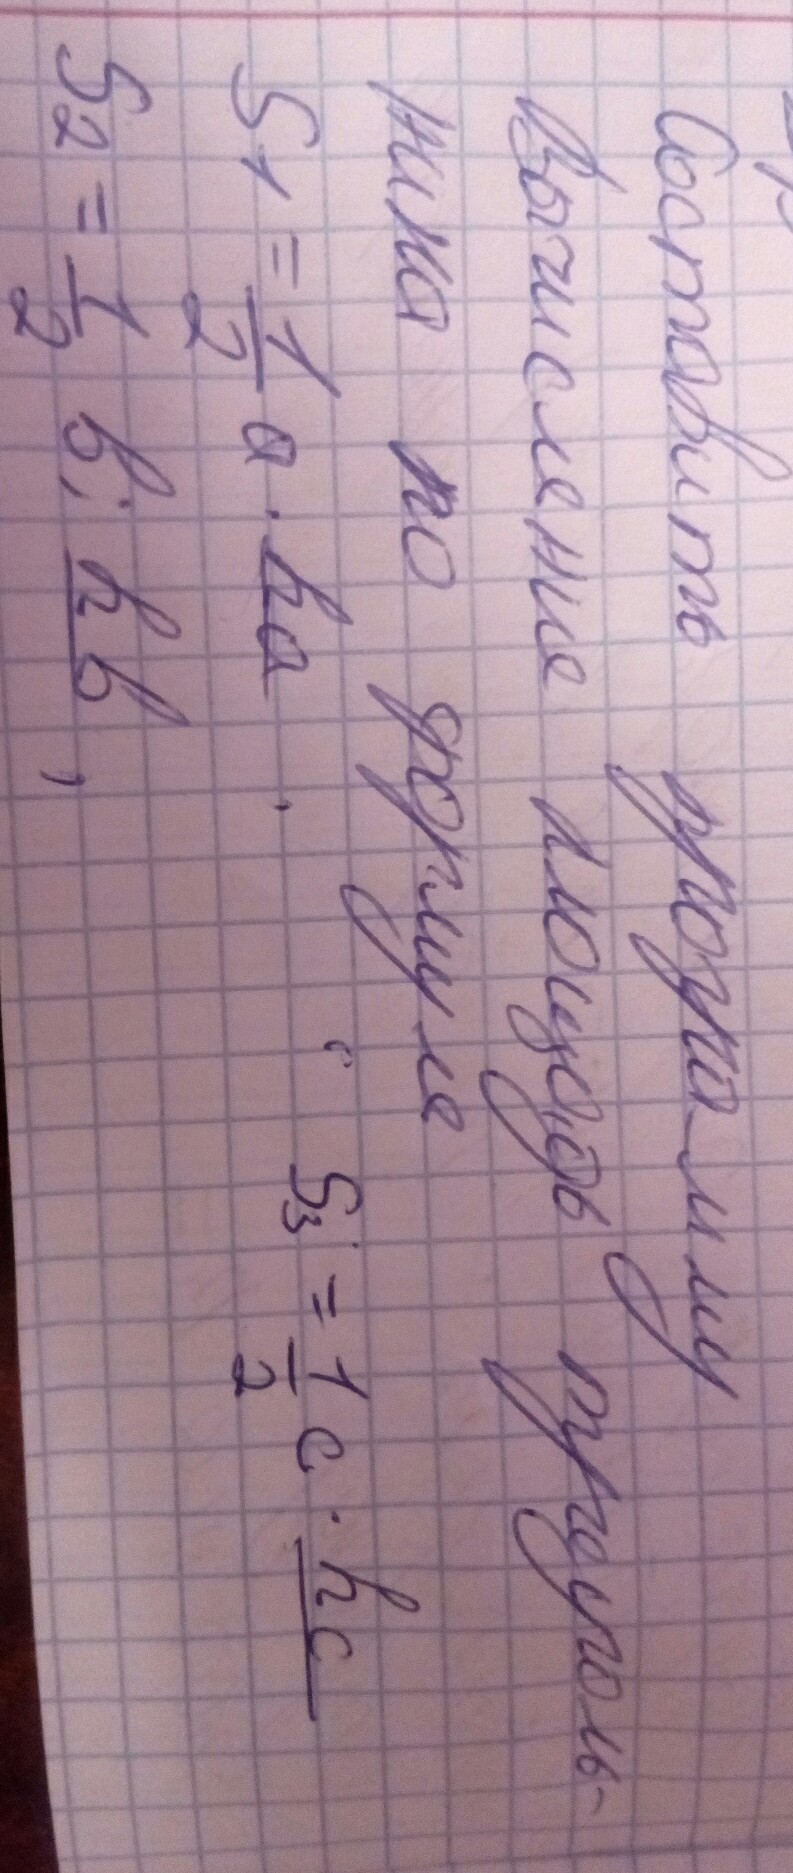 Составить программу
Вычисление площадь треуголь-
ника по формуле
S1 = 1/2 a · ha . S3 = 1/2 c · hc
S2 = 1/2 b · hb ,